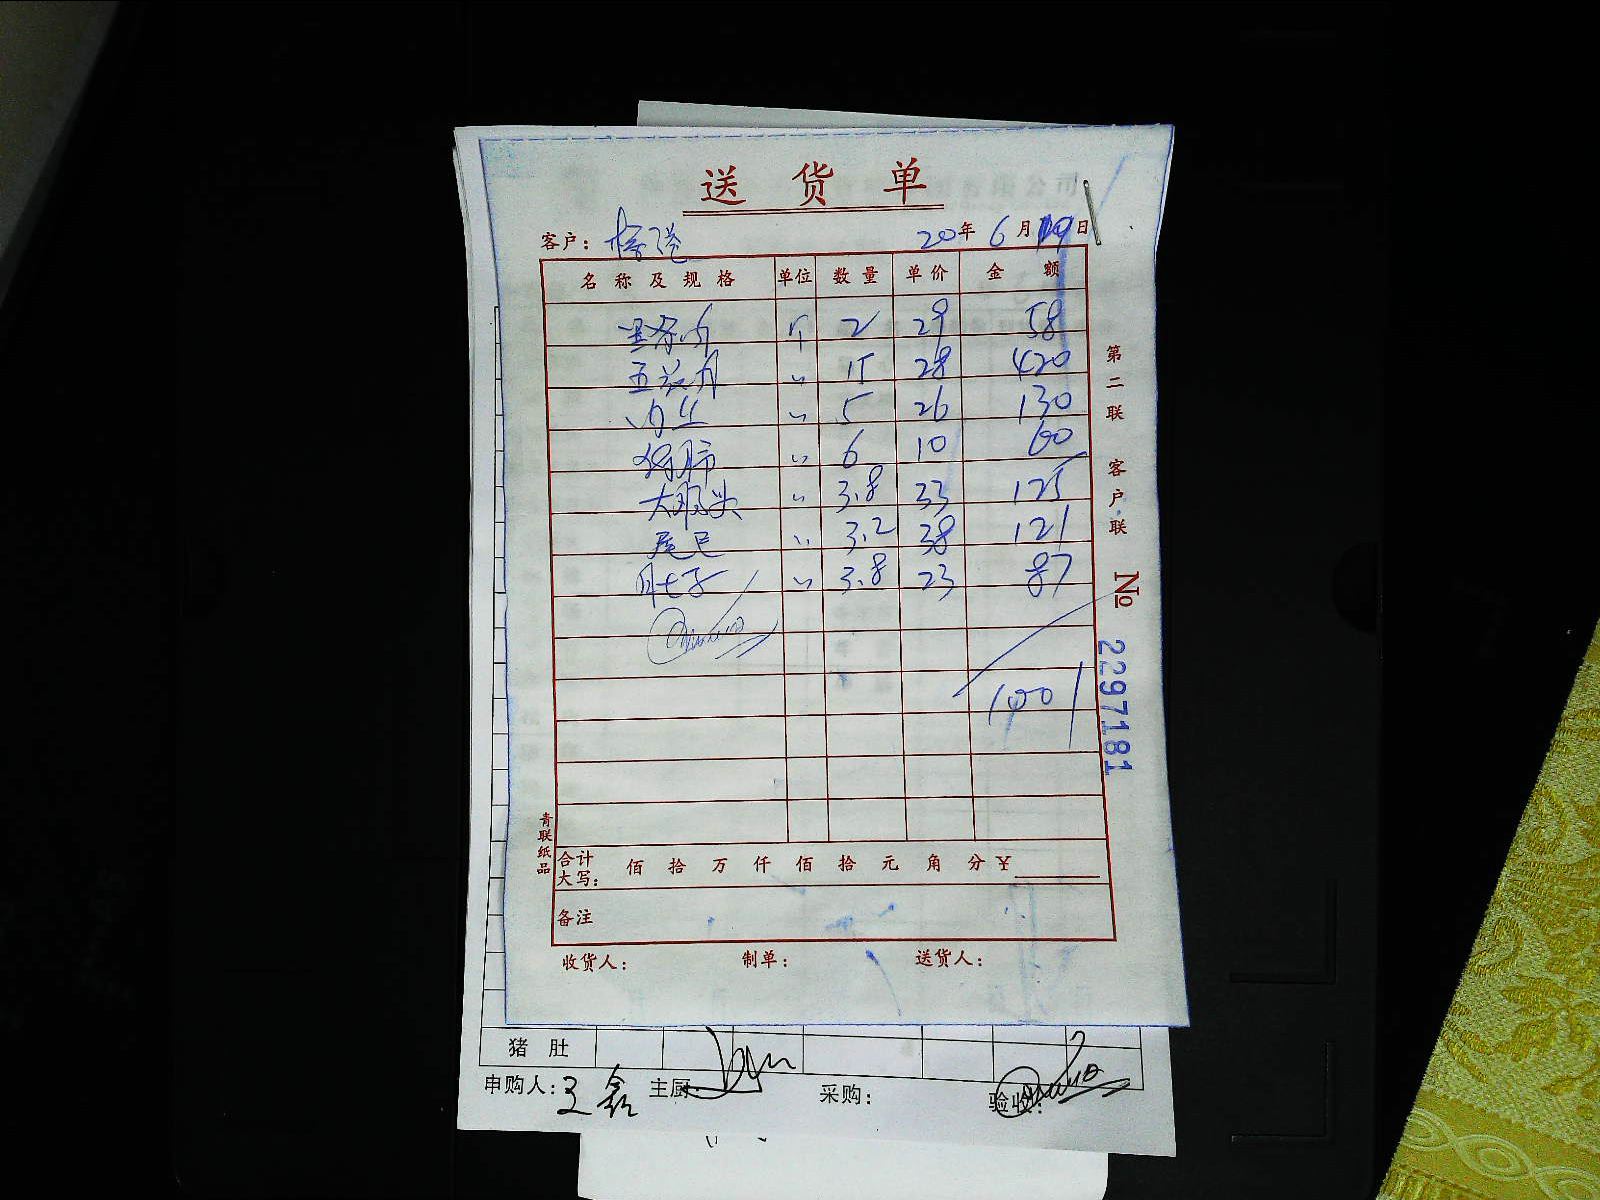 送货单
客户： 20年6月19日
名称及规格 单位 数量 单价 金额
里脊肉 个 2 29 58
五花肉 〃 15 28 420
肉丝 〃 5 26 130
猪肺 〃 6 10 60
大肠头 〃 3.8 33 125
尾巴 〃 3.2 38 121
肚子 〃 3.8 23 87
1001
合计大写： 佰 拾 万 仟 佰 拾 元 角 分 ￥
备注
收货人： 制单： 送货人：
第二联 客户联
№ 2297181
青联纸品
猪肚
申购人：王鑫 主厨： 采购： 验收：